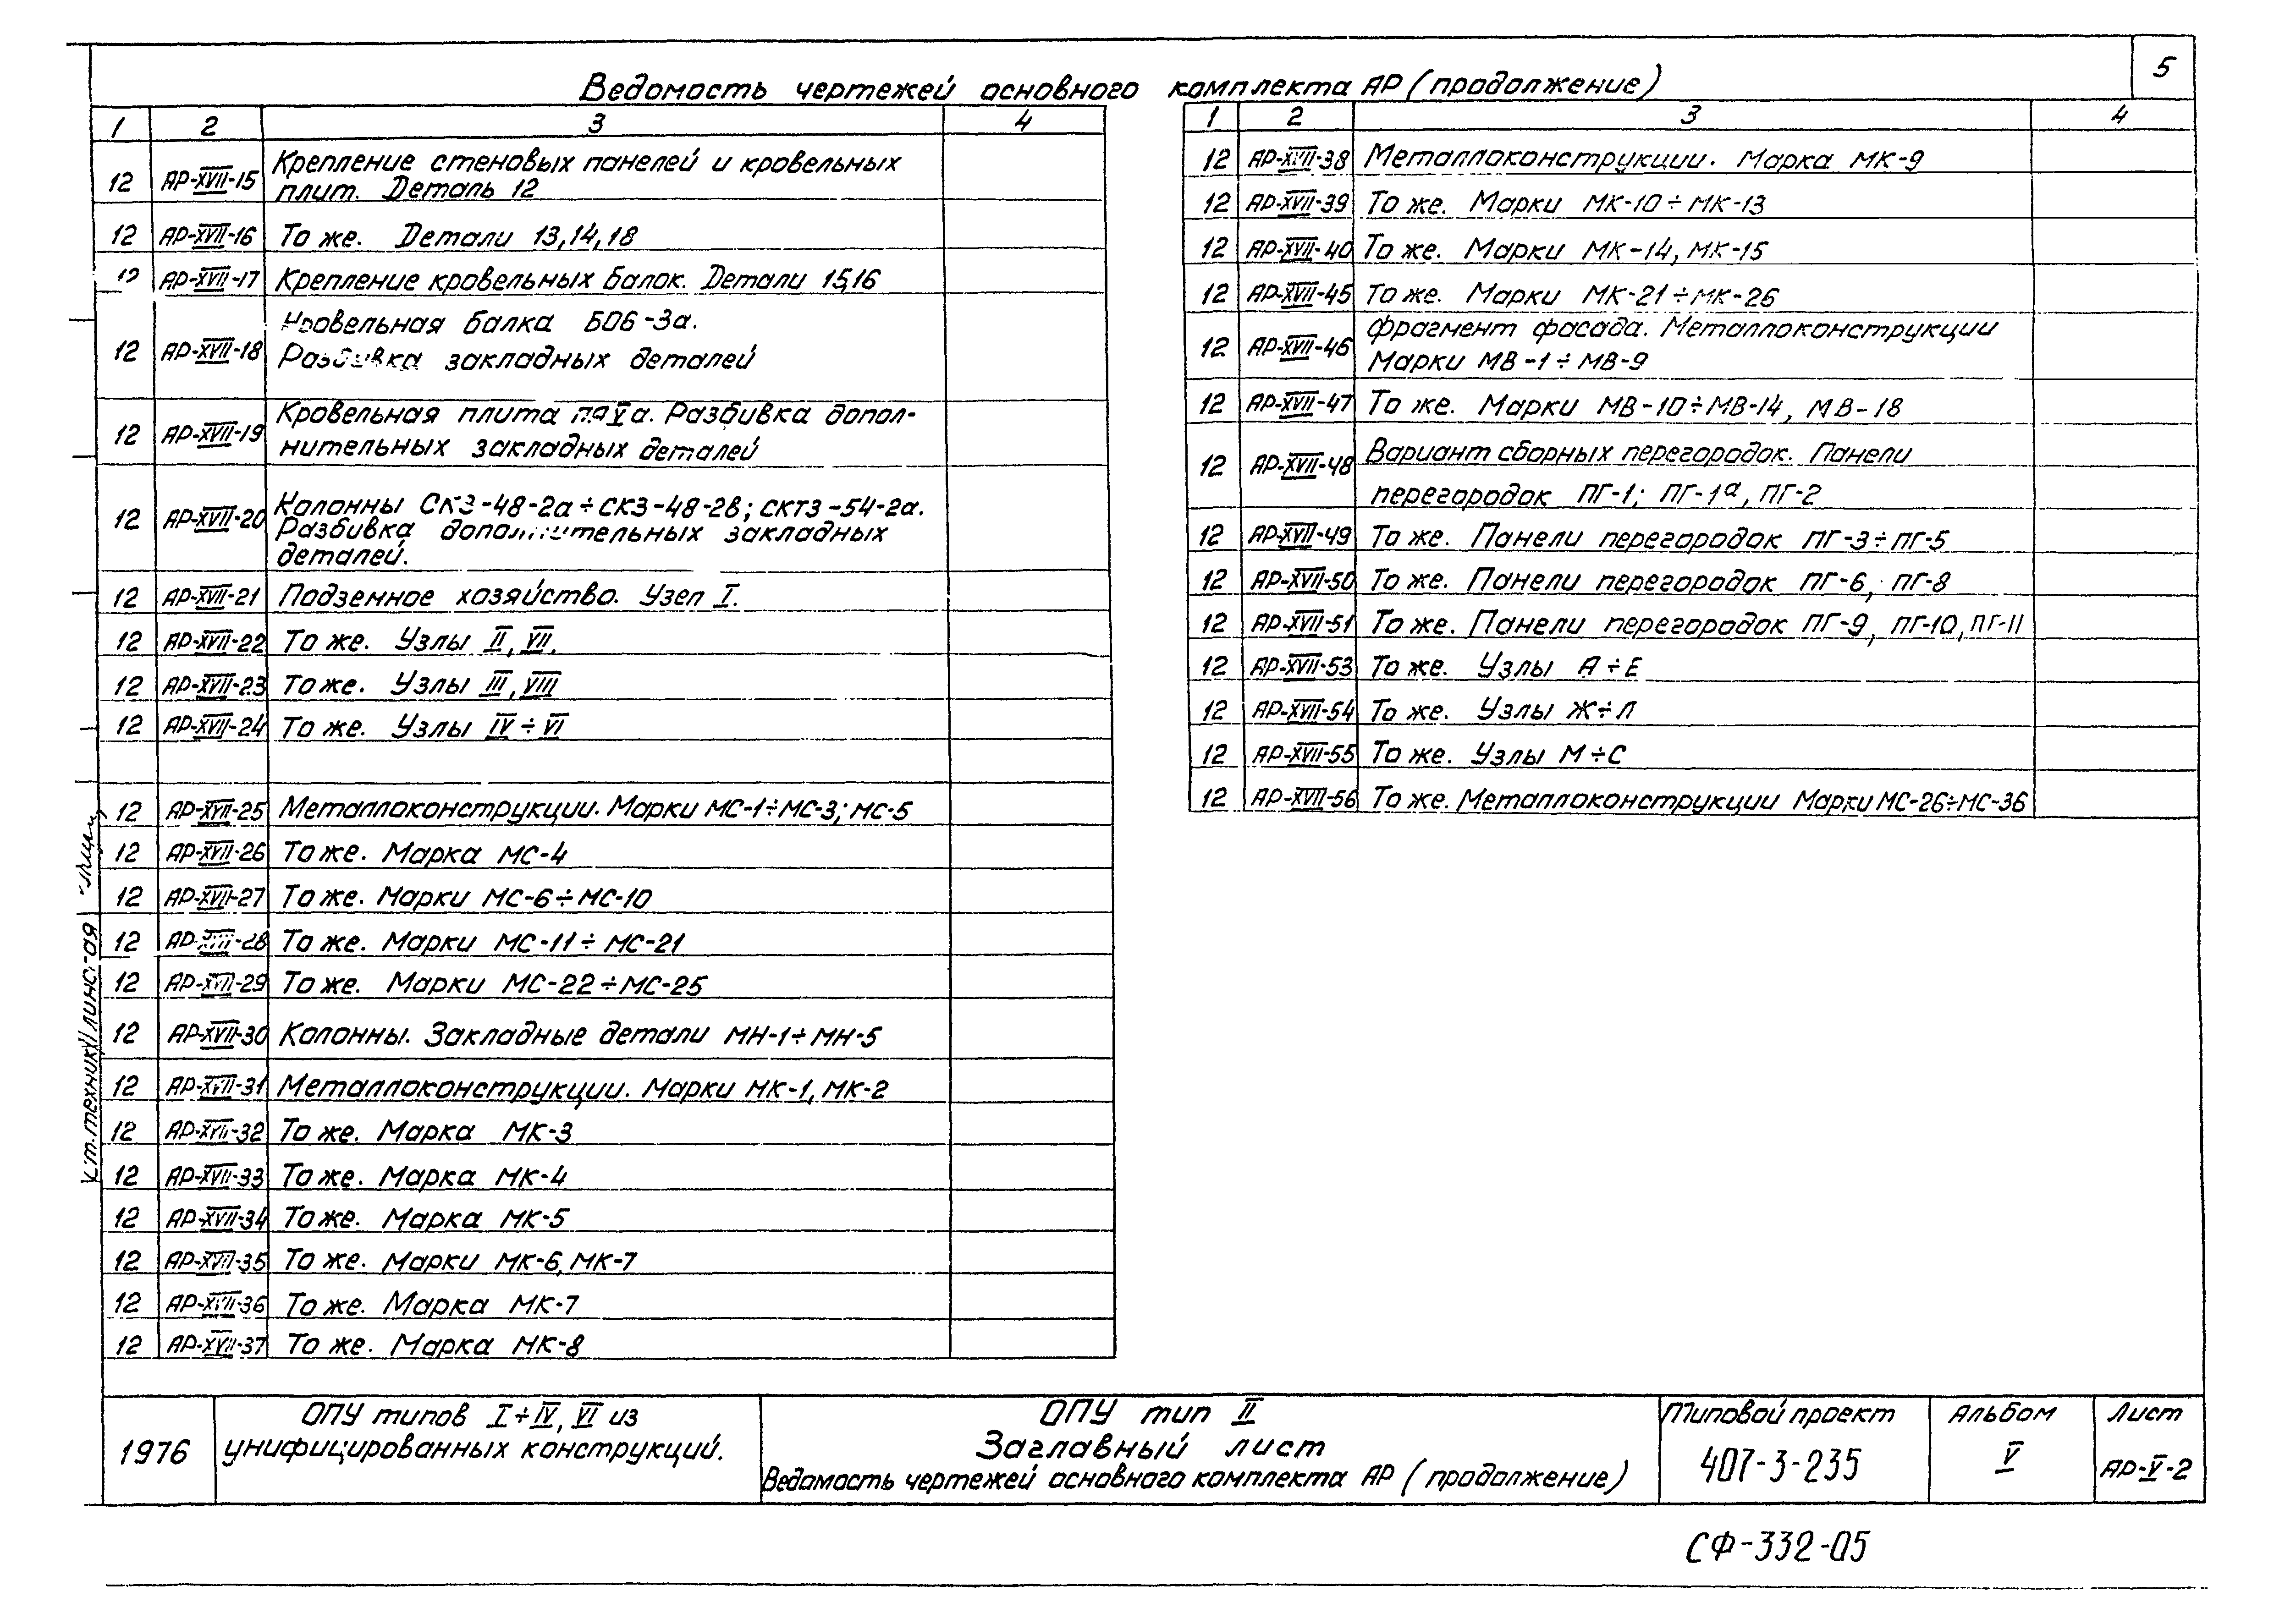 5
Ведомость чертежей основного комплекта АР (продолжение)
1 2 3 4
12 АР-XVII-15 Крепление стеновых панелей и кровельных
плит. Деталь 12
12 АР-XVII-16 То же. Детали 13,14,18
12 АР-XVII-17 Крепление кровельных балок. Детали 15,16
12 АР-XVII-18 Кровельная балка БО6-3а.
Разбивка закладных деталей
12 АР-XVII-19 Кровельная плита а. Разбивка допол-
нительных закладных деталей
12 АР-XVII-20 Колонны СК3-48-2а÷СК3-48-2в; СКТ3-54-2а.
Разбивка дополнительных закладных
деталей.
12 АР-XVII-21 Подземное хозяйство. Узел I.
12 АР-XVII-22 То же. Узлы II, VII.
12 АР-XVII-23 То же. Узлы III, VIII
12 АР-XVII-24 То же. Узлы IV ÷ VI
12 АР-XVII-25 Металлоконструкции. Марки МС-1÷МС-3; МС-5
12 АР-XVII-26 То же. Марка МС-4
12 АР-XVII-27 То же. Марки МС-6÷МС-10
12 АР-XVII-28 То же. Марки МС-11÷МС-21
12 АР-XVII-29 То же. Марки МС-22÷МС-25
12 АР-XVII-30 Колонны. Закладные детали МН-1÷МН-5
12 АР-XVII-31 Металлоконструкции. Марки МК-1, МК-2
12 АР-XVII-32 То же. Марка МК-3
12 АР-XVII-33 То же. Марка МК-4
12 АР-XVII-34 То же. Марка МК-5
12 АР-XVII-35 То же. Марки МК-6, МК-7
12 АР-XVII-36 То же. Марка МК-7
12 АР-XVII-37 То же. Марка МК-8
1 2 3 4
12 АР-XVII-38 Металлоконструкции. Марка МК-9
12 АР-XVII-39 То же. Марки МК-10÷МК-13
12 АР-XVII-40 То же. Марки МК-14, МК-15
12 АР-XVII-45 То же. Марки МК-21÷МК-26
12 АР-XVII-46 Фрагмент фасада. Металлоконструкции
Марки МВ-1÷МВ-9
12 АР-XVII-47 То же. Марки МВ-10÷МВ-14, МВ-18
12 АР-XVII-48 Вариант сборных перегородок. Панели
перегородок ПГ-1; ПГ-1а, ПГ-2
12 АР-XVII-49 То же. Панели перегородок ПГ-3÷ПГ-5
12 АР-XVII-50 То же. Панели перегородок ПГ-6, ПГ-8
12 АР-XVII-51 То же. Панели перегородок ПГ-9, ПГ-10, ПГ-11
12 АР-XVII-53 То же. Узлы А÷Е
12 АР-XVII-54 То же. Узлы Ж÷Л
12 АР-XVII-55 То же. Узлы М÷С
12 АР-XVII-56 То же. Металлоконструкции Марки МС-26÷МС-36
ст.техник
1976
ОПУ типов I÷IV, VI из
унифицированных конструкций.
ОПУ тип II
Заглавный лист
Ведомость чертежей основного комплекта АР (продолжение)
Типовой проект
407-3-235
Альбом
V
Лист
АР-V-2
СФ-332-05